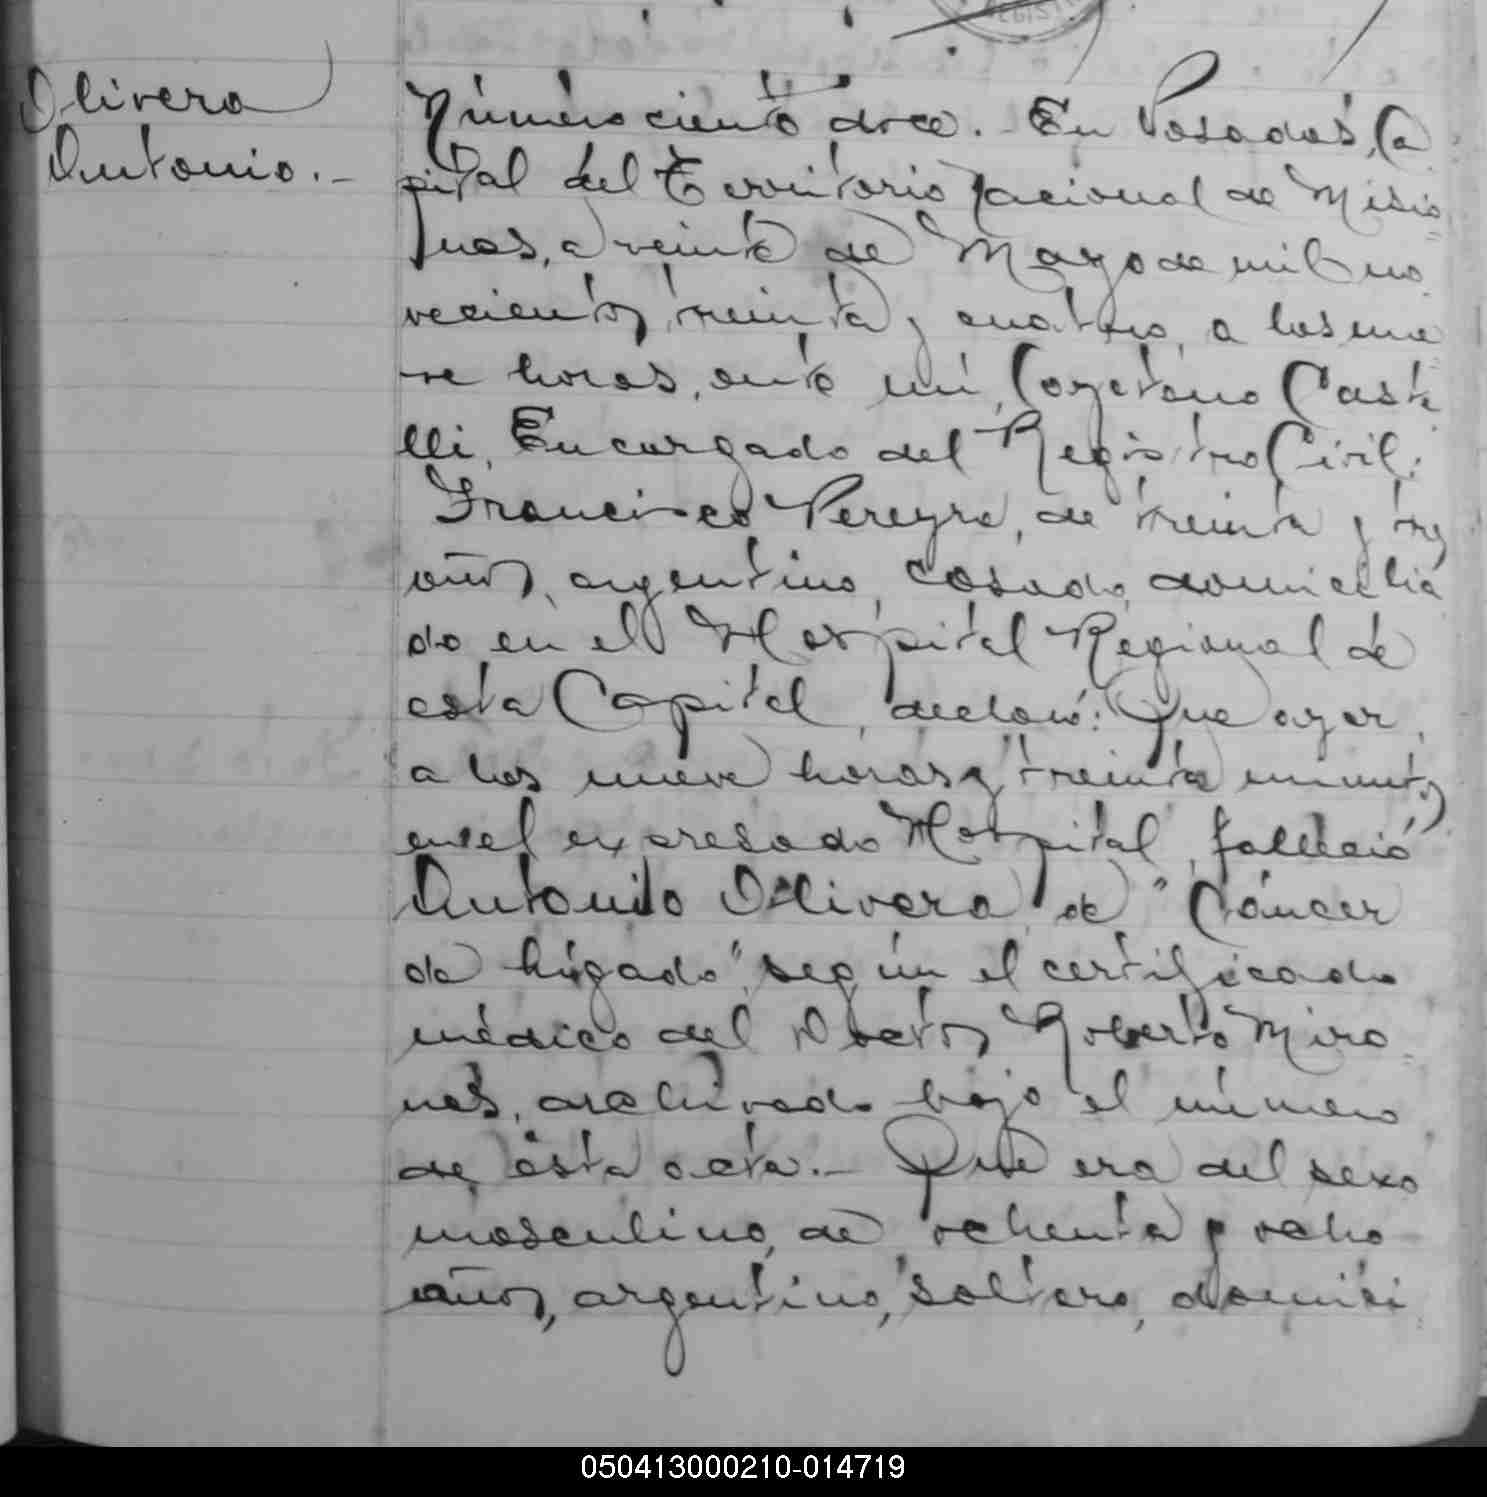 Olivera
Antonio.-
Número ciento doce. En Posadas, Ca
pital del Territorio Nacional de Misio
nes, a veinte de Mayo de mil no
vecientos treinta y cuatro, a las nue
ve horas, ante mí, Cayetano Caste
lli, Encargado del Registro Civil:
Francisco Pereyra, de treinta y tres
años, argentino, casado, domicilia
do en el Hospital Regional de
esta Capital, declaró: Que ayer,
a las nueve horas y treinta minutos
en el expresado Hospital, falleció
Antonio Olivera, de "Cáncer
de hígado", según el certificado
médico del Doctor Roberto Miro
nes, archivado bajo el número
de ésta acta.- Que era del sexo
masculino, de ochenta y ocho
años, argentino, soltero, domici
050413000210-014719